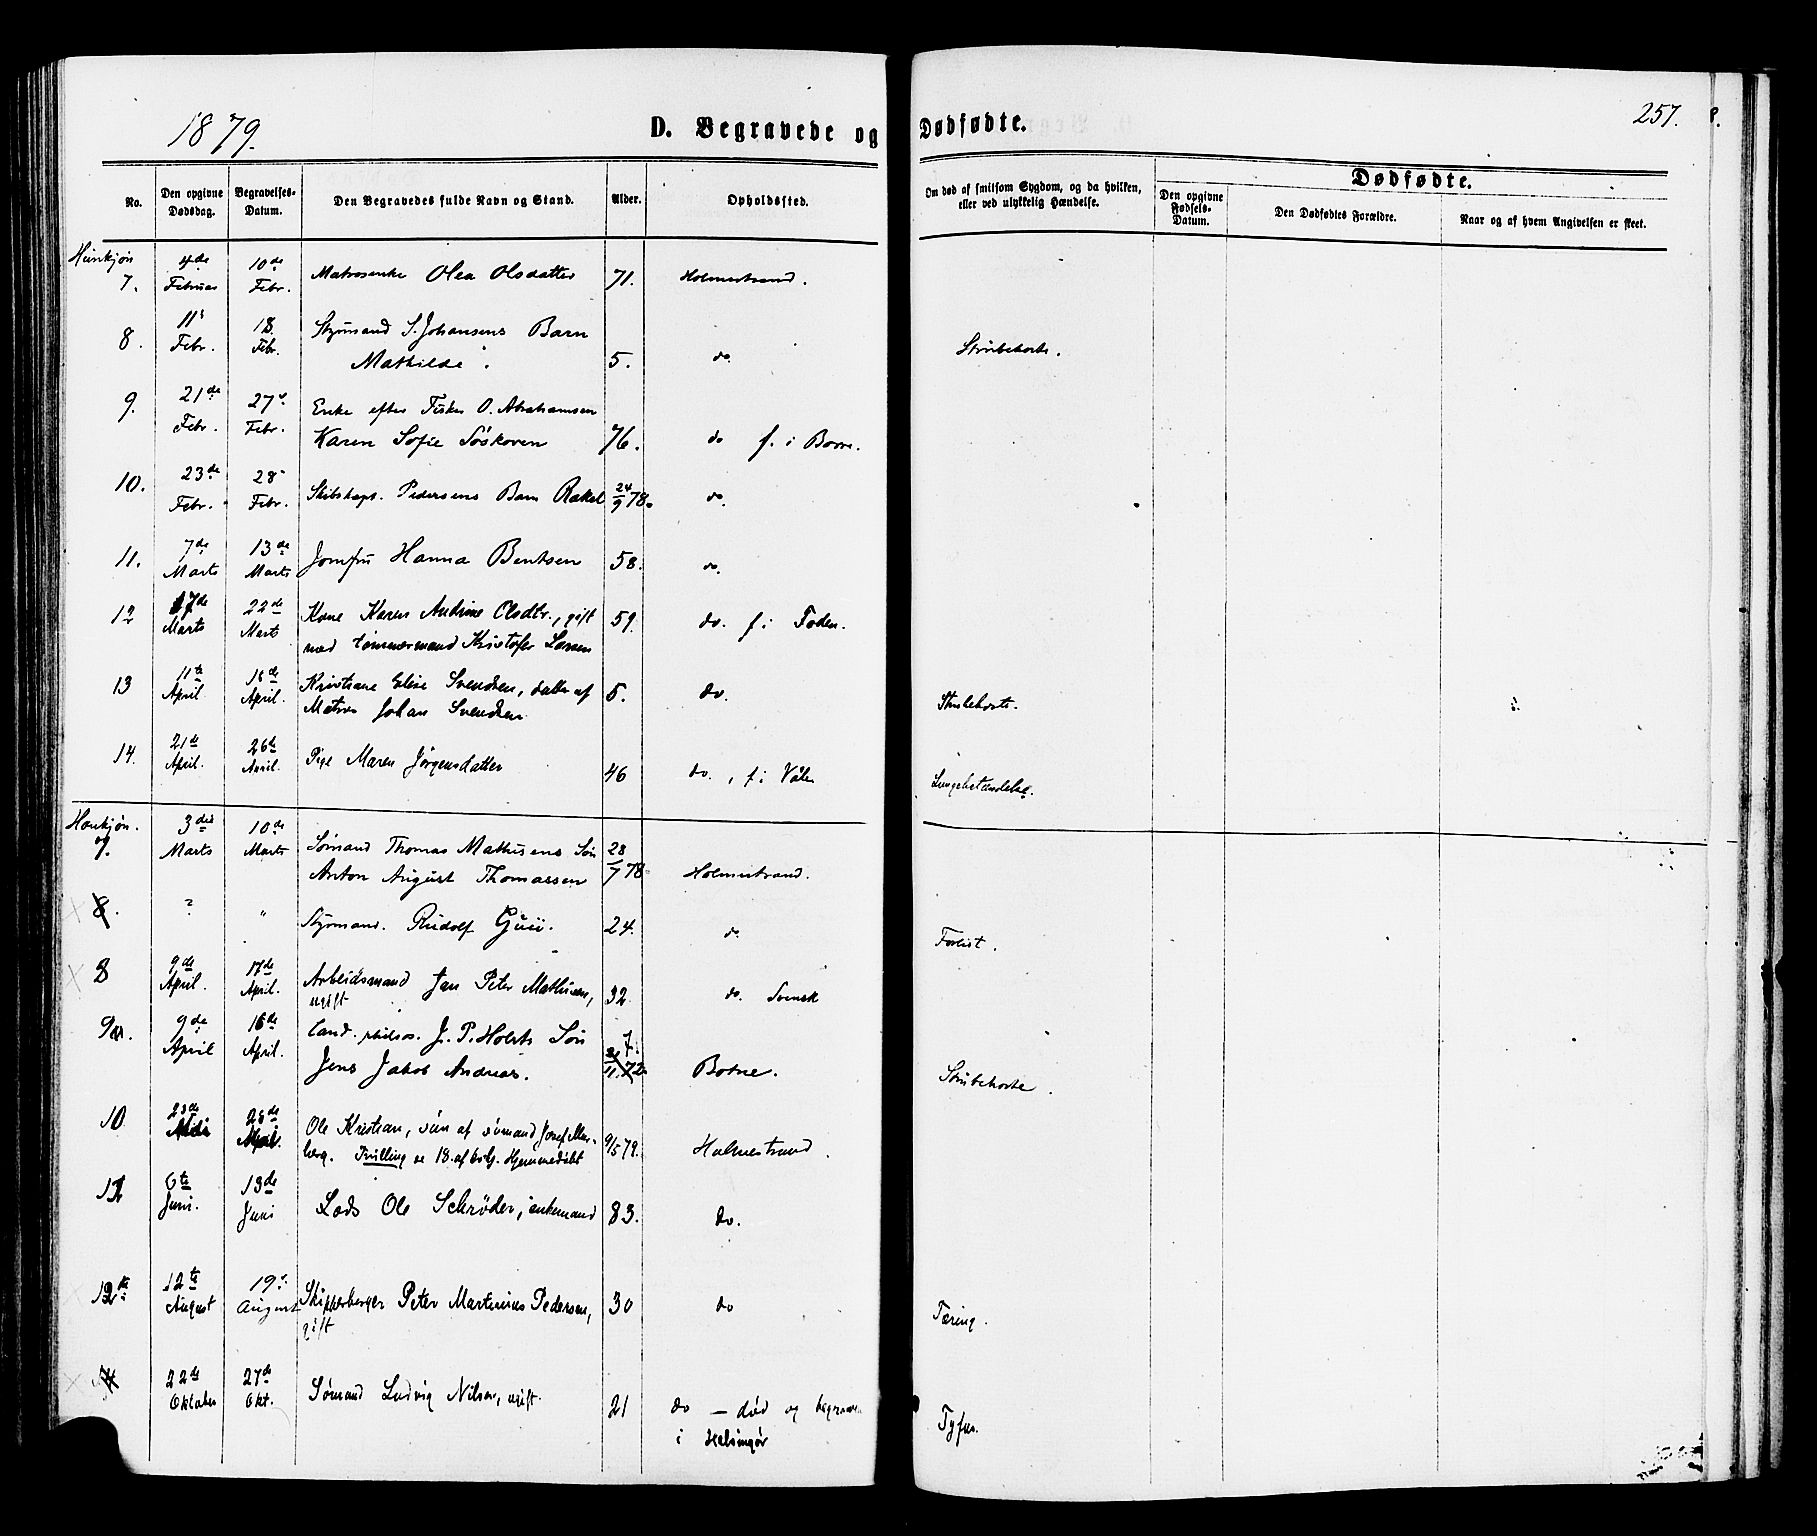 1879.
D. Begravede og Dødfødte.
257.
8.
No.
Den opgivne Dødsdag.
Begravelses-Datum.
Den Begravedes fulde Navn og Stand.
Alder.
Opholdssted.
Om død af smitsom Sygdom, og da hvilken, eller ved ulykkelig Hændelse.
Dødfødte.
Den opgivne Fødsels-Datum.
Den Dødfødtes Forældre.
Naar og af hvem Angivelsen er skeet.
Hunkjøn
7. 4de Februar 10de Febr. Matrosenke Olea Olsdatter 71. Holmestrand.
8. 11' Febr. 18. Febr. Styrmand S. Johansens Barn
Mathilde. 5. do. Strubehoste.
9. 21de Febr. 27' Febr. Enke efter Fisker O. Abrahamsen
Karen Sofie Soskoven 76. do f. i Borre.
10. 23de Febr. 28' Febr. Skibskapt. Pedersens Barn Rakel 24/9 78. do.
11. 7de Marts 13de Marts Jomfru Hanna Bentsen 58. do.
12 17de Marts 22de Marts Kone Karen Andrine Olsdtr., gift 59. do. f i Foden.
med tømmermand Kristofer Larsen
13 11te April 16de April. Kristiane Elise Svendsen, datter af 5. do. Strubehoste.
Matros Johan Svendsen
14. 21de April. 26de April. Pige Maren Jørgensdatter 46 do., f i Våle Lungebetændelse.
Hankjøn.
7. 3die Marts 10de Marts Sømand Thomas Mathisens Søn 28/7 78
Anton August Thomassen Holmestrand.
8. ? " Styrmand. Rudolf 24. do. Forlist.
8 9de April. 17de April. Arbeidsmand Jan Peter Mathisen, 32 do. Svensk
ugift
9. 9de April 16de April. Cand. philos. J. P. Holsts Søn 7.
Jens Jakob Andreas. 11. 72 Botne. Strubehoste.
10 23de 28de Ole Kristian, søn af sømand Josef
Tvilling se 18. af Hjemmedøbt 9/5 79. Holmestrand.
11 6te Juni. 13de Juni Lods Ole Schrøder, enkemand 83. do.
12te 12te August 19' August Skibsbygger Peter Martinius Pedersen, 30 do Tæring.
gift
14 22de Oktober 27de Okt. Sømand Ludvig Nilsen, ugift. 21 do — død og begraven Tyfus.
i Helsingør